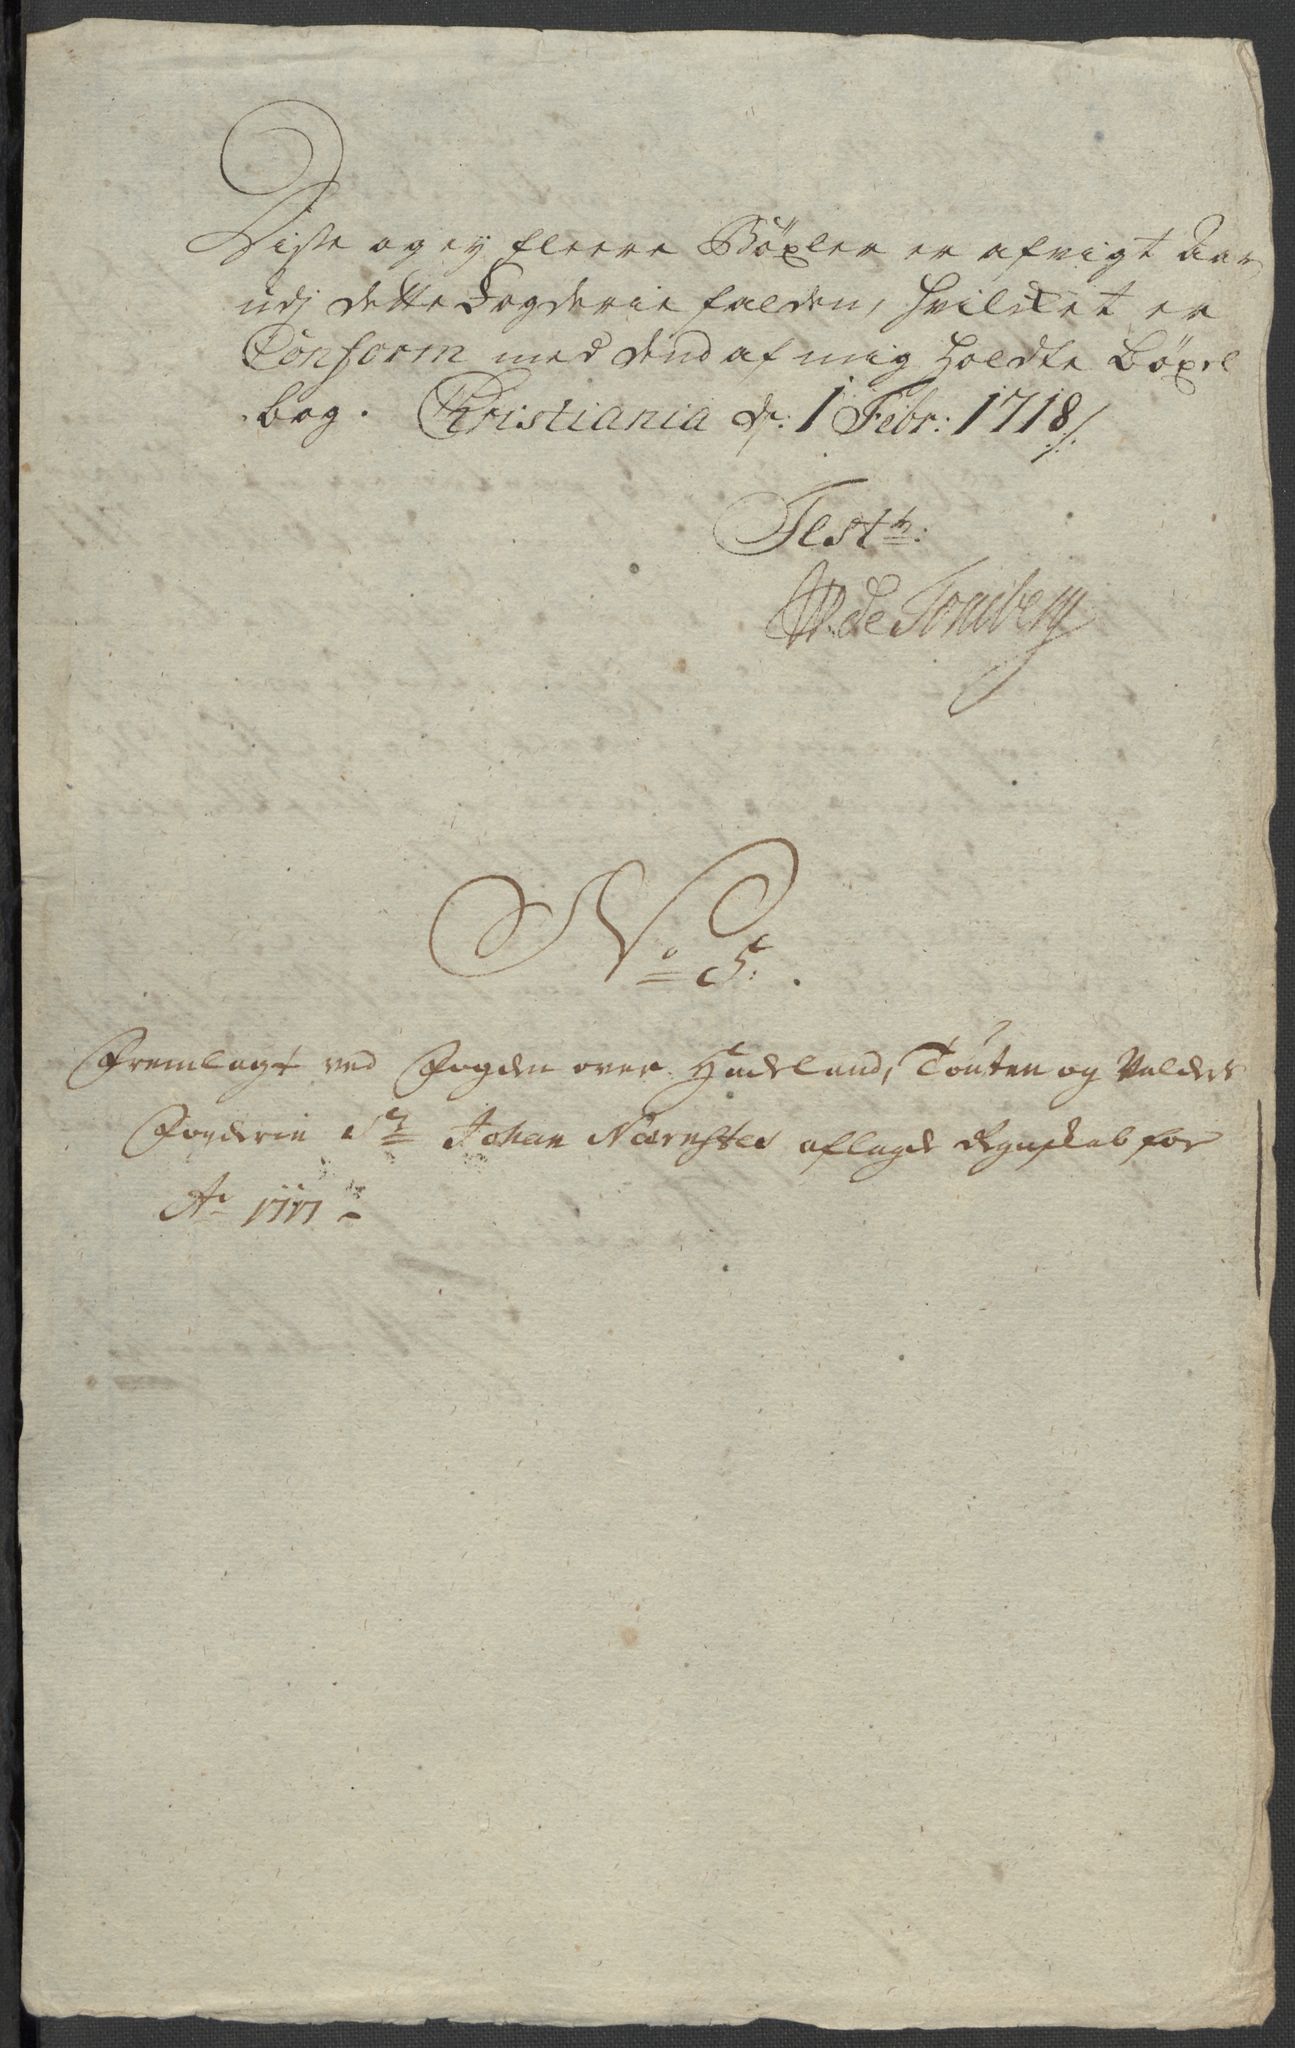 Disse og ey fleere Böxler er afvigt Aar
udj dette Fogderie falden, hvilcket er
Conform med dend af mig holdte Böxel
bog. Christiania d: 1 Febr: 1718 ./.
Test:
W. de Tonsberg
No 5.
Fremlagt ved Fogden over Hadeland, Toten og Valders
Fogderie Sr Johan Nærsteds aflagde Regnskab for
Ao 1717